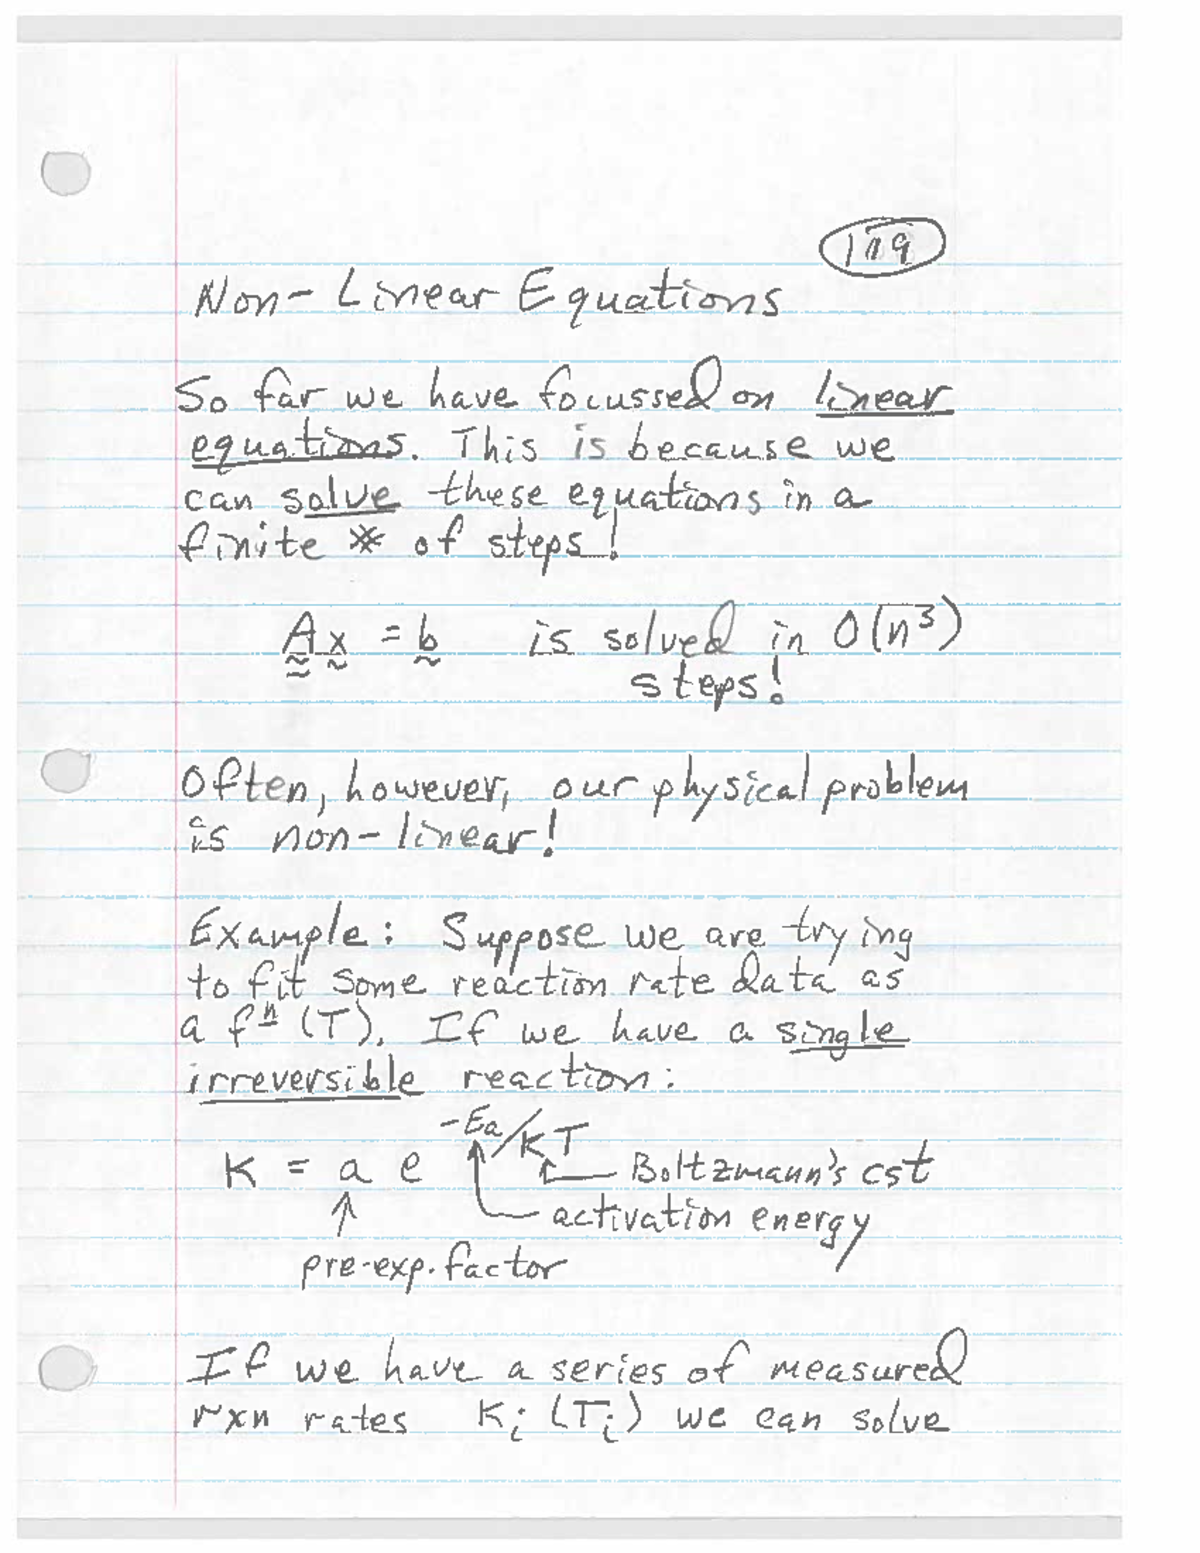 Non-Linear Equations
So far we have focussed on linear
equations. This is because we
can solve these equations in a
finite # of steps!
A x = b is solved in O(n³)
steps!
Often, however, our physical problem
is non-linear!
Example: Suppose we are trying
to fit some reaction rate data as
a fⁿ (T). If we have a single
irreversible reaction:
K = a e^(-Ea/KT)
Boltzmann's cst
activation energy
pre-exp. factor
If we have a series of measured
rxn rates Ki (Ti) we can solve